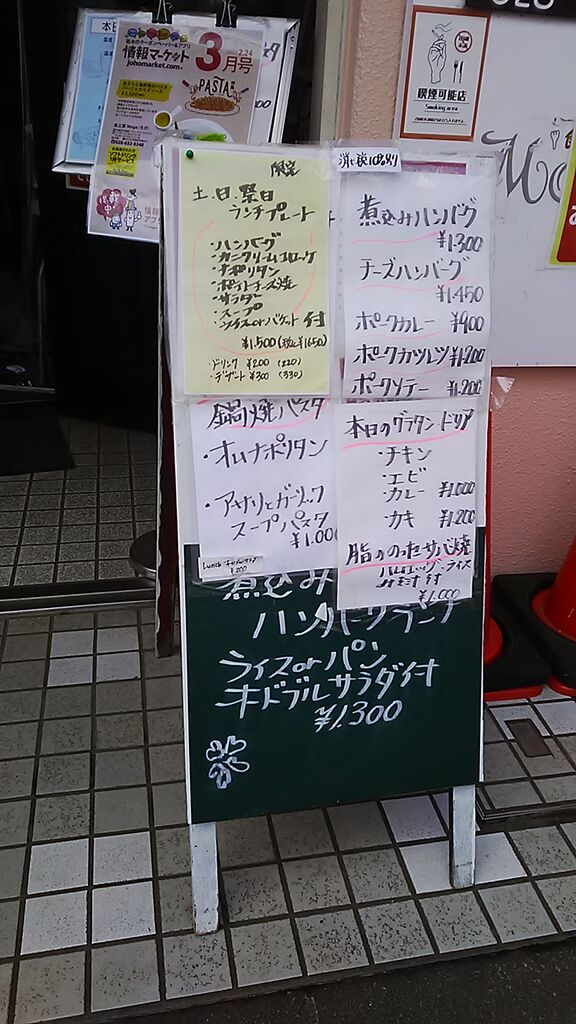 情報マーケット
johomarket.com
3月号
2.24
PASTA
028-632-8348
ソフトドリンク
1杯サービス
喫煙可能店
Smoking area
限定
土.日.祭日
ランチプレート
・ハンバーグ
・カニクリームコロッケ
・ナポリタン
・ポテトチーズ焼
・サラダー
・スープ
・ライスorバケット付
¥1,500(税込¥1650)
・ドリンク ¥200 (220)
・デザート ¥300 (330)
煮込みハンバグ
¥1.300
チーズハンバーグ
¥1.450
ポークカレー ¥900
ポークカツレツ ¥1.200
ポークソテー ¥1.200
鍋焼パスタ
・オムナポリタン
・アサリとガーリック
スープパスタ
¥1.000
Lunch
¥200
本日のグラタン ドリア
・チキン
・エビ
・カレー ¥1.000
・カキ ¥1.200
脂ののったサバ焼
ライス
付
¥1.000
煮込み
ハンバーグランチ
ライスorパン
オードブルサラダ付
¥1.300